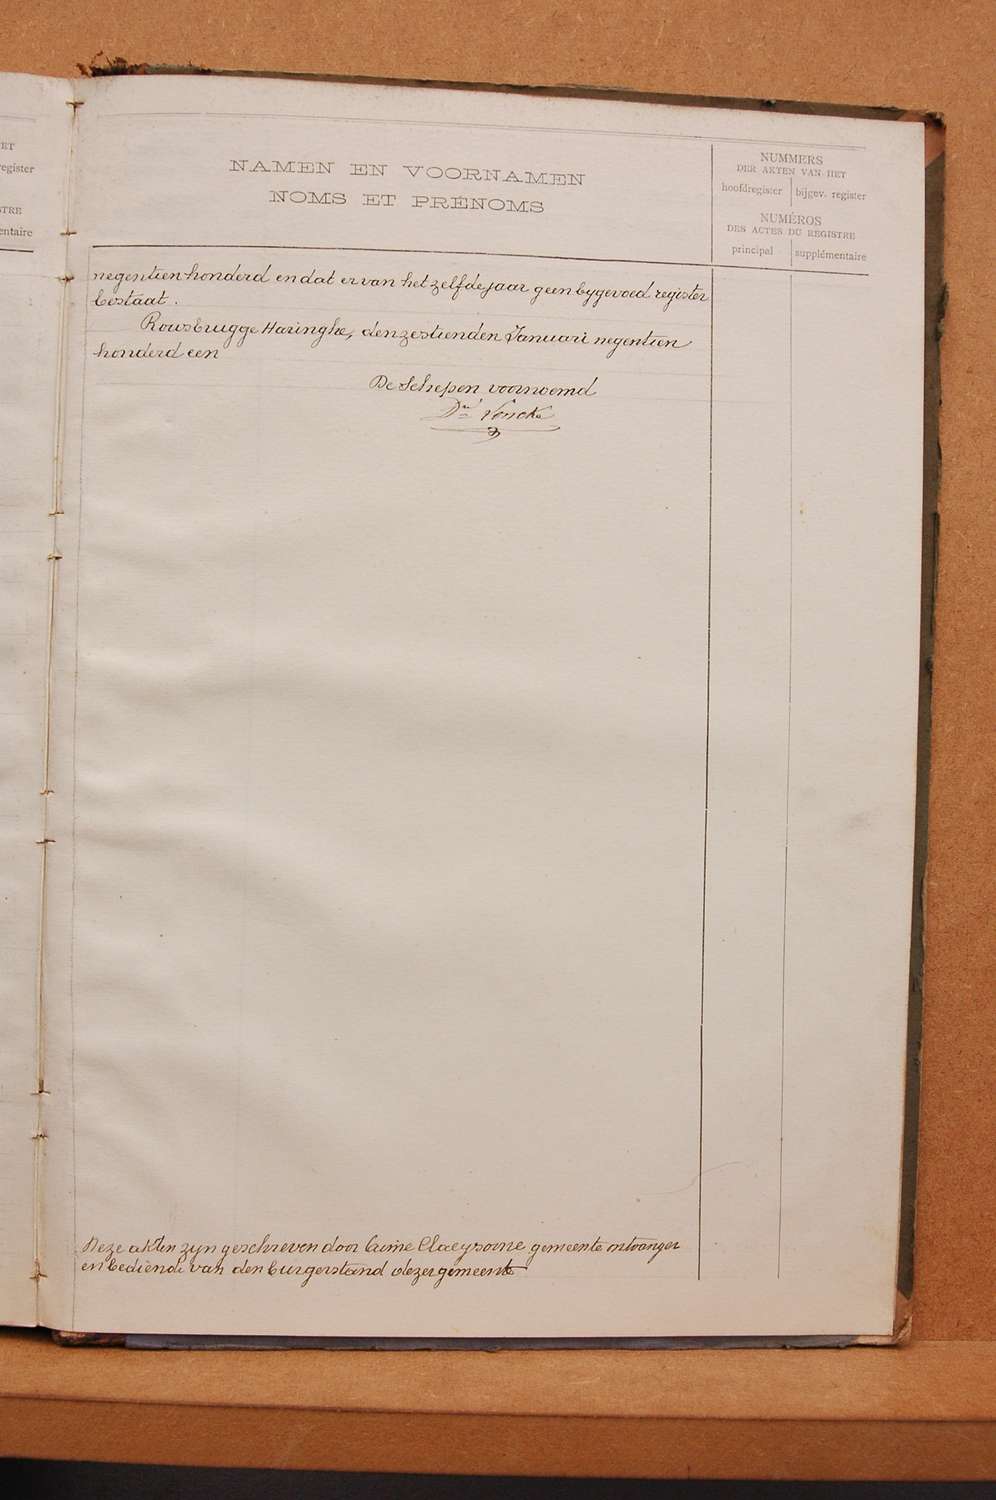 ET
egister
TRE
entaire
NAMEN EN VOORNAMEN
NOMS ET PRÉNOMS
NUMMERS
DER AKTEN VAN HET
hoofdregister bijgev. register
NUMÉROS
DES ACTES DU REGISTRE
principal supplémentaire
negentien honderd en dat er van het zelfde jaar geen bygevoed register
bestaat.
Rousbrugge Haringhe, den zestienden Januari negentien
honderd een
De Schepen voornoemd
Deze akten zyn geschreven door Claeysoone gemeente ontvanger
en bediende van den burgerstand dezer gemeente